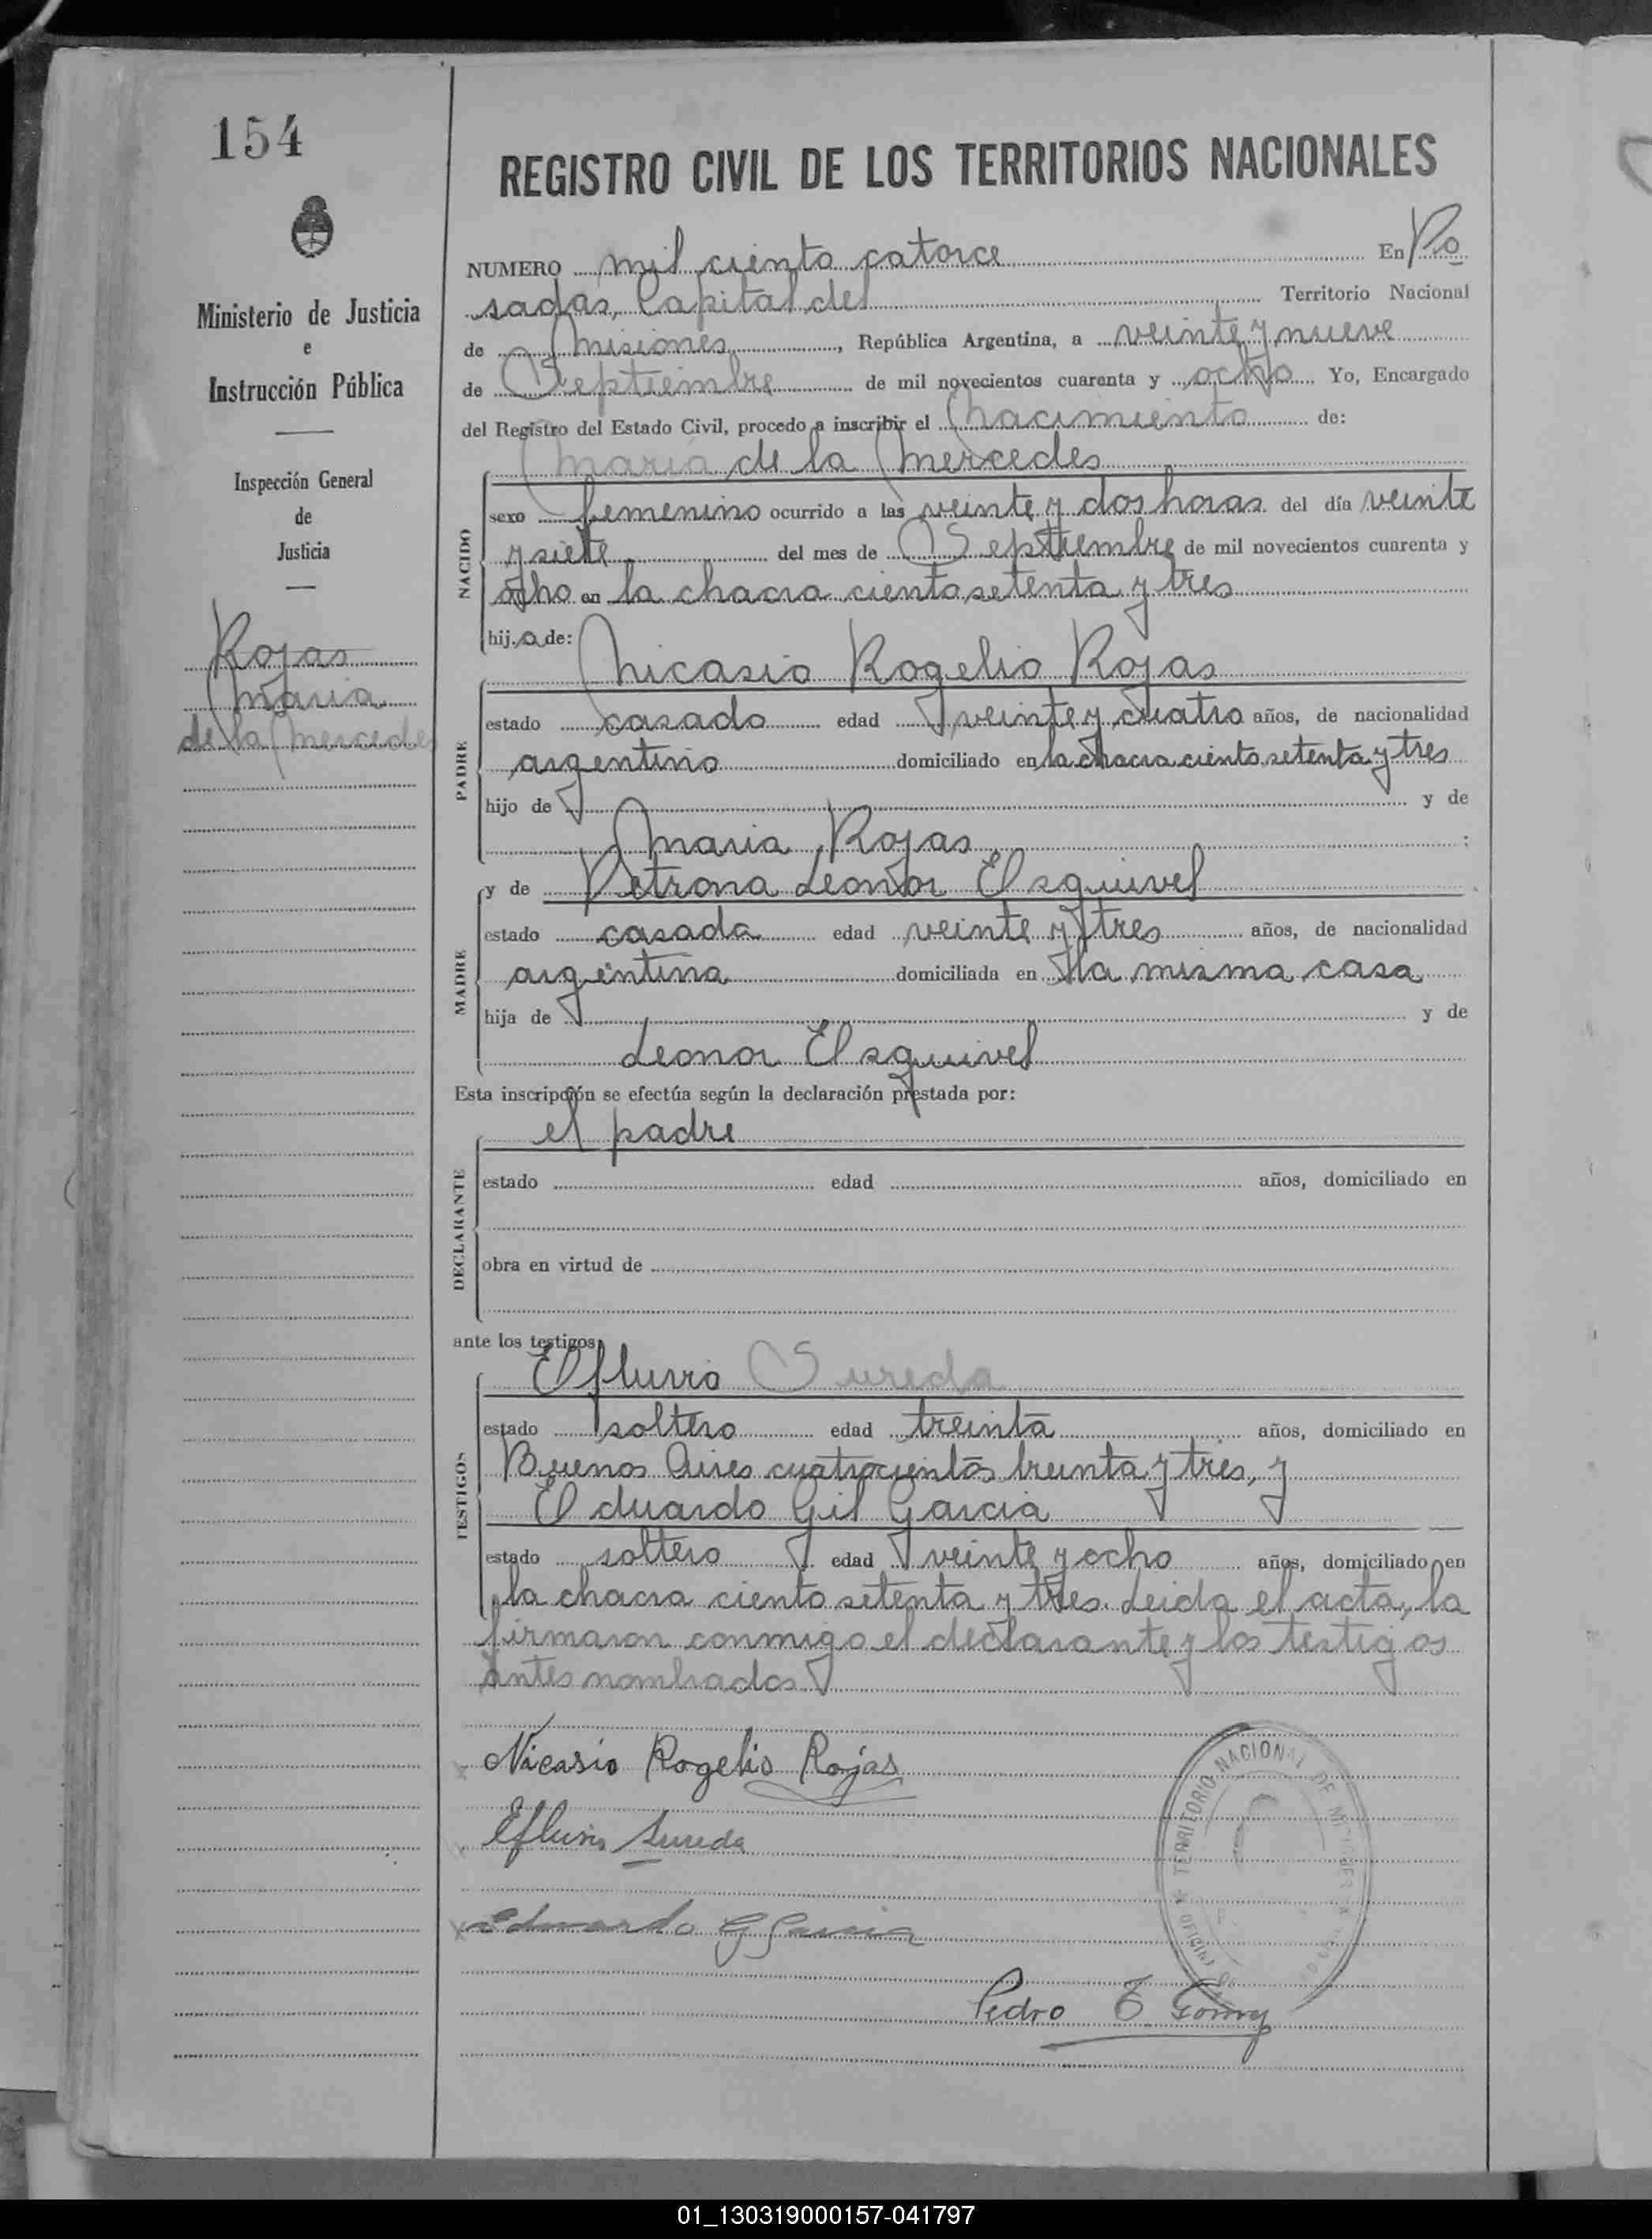 154
Ministerio de Justicia
e
Instrucción Pública
Inspección General
de
Justicia
Rojas
Maria
de la Mercedes
REGISTRO CIVIL DE LOS TERRITORIOS NACIONALES
NUMERO mil ciento catorce En Po
sadas, Capital del Territorio Nacional
de Misiones, República Argentina, a veinte y nueve
de Septiembre de mil novecientos cuarenta y ocho Yo, Encargado
del Registro del Estado Civil, procedo a inscribir el Nacimiento de:
Maria de la Mercedes
NACIDO
sexo femenino ocurrido a las veinte y dos horas del día veinte
y siete del mes de Septiembre de mil novecientos cuarenta y
ocho en la chacra ciento setenta y tres
hij a de:
Nicasio Rogelio Rojas
PADRE
estado casado edad veinte y cuatro años, de nacionalidad
argentino domiciliado en la chacra ciento setenta y tres
hijo de y de
Maria Rojas :
y de Petrona Leonor Esquivel
MADRE
estado casada edad veinte y tres años, de nacionalidad
argentina domiciliada en la misma casa
hija de y de
Leonor Esquivel
Esta inscripción se efectúa según la declaración prestada por:
el padre
DECLARANTE
estado edad años, domiciliado en
obra en virtud de
ante los testigos:
Efluvio Sureda
TESTIGOS
estado soltero edad treinta años, domiciliado en
Buenos Aires cuatrocientos treinta y tres, y
Eduardo Gil Garcia
estado soltero edad veinte y ocho años, domiciliado en
la chacra ciento setenta y tres. Leida el acta, la
firmaron conmigo el declarante y los testigos
antes nombrados
Nicasio Rogelio Rojas
Efluvio Sureda
Eduardo G Garcia
TERRITORIO NACIONAL DE MISIONES
OFICINA
Pedro
01_130319000157-041797